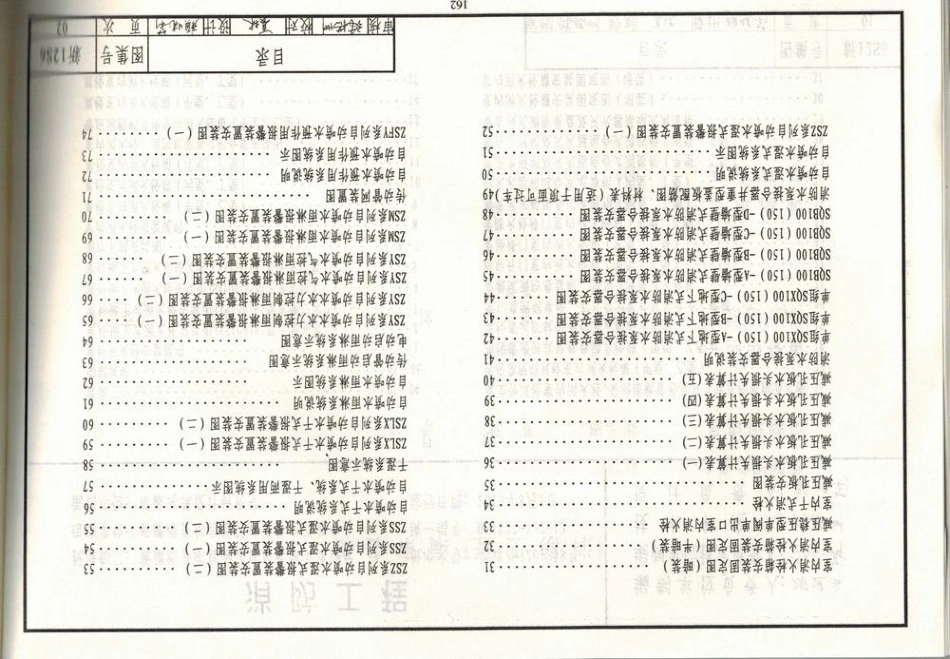 室内消火栓箱安装固定图(暗装) 31
室内消火栓箱安装固定图(半暗装) 32
减压稳压型单阀单出口室内消火栓 33
室内干式消火栓 34
减压孔板安装图 35
减压孔板水头损失计算表(一) 36
减压孔板水头损失计算表(二) 37
减压孔板水头损失计算表(三) 38
减压孔板水头损失计算表(四) 39
减压孔板水头损失计算表(五) 40
消防水泵接合器安装说明 41
单组SQX100(150)-A型地下式消防水泵接合器安装图 42
单组SQX100(150)-B型地下式消防水泵接合器安装图 43
单组SQX100(150)-C型地下式消防水泵接合器安装图 44
SQB100(150)-A型墙壁式消防水泵接合器安装图 45
SQB100(150)-B型墙壁式消防水泵接合器安装图 46
SQB100(150)-C型墙壁式消防水泵接合器安装图 47
SQB100(150)-D型墙壁式消防水泵接合器安装图 48
消防水泵接合器井重型盖板配筋图、材料表(适用于顶面可过车)49
自动喷水湿式系统说明 50
自动喷水湿式系统图示 51
ZSZ系列自动喷水湿式报警装置安装图(一) 52
ZSZ系列自动喷水湿式报警装置安装图(二) 53
ZSS系列自动喷水湿式报警装置安装图(一) 54
ZSS系列自动喷水湿式报警装置安装图(二) 55
自动喷水干式系统说明 56
自动喷水干式系统、干湿两用系统图示 57
干湿系统示意图 58
ZSLX系列自动喷水干式报警装置安装图(一) 59
ZSLX系列自动喷水干式报警装置安装图(二) 60
自动喷水雨淋系统说明 61
自动喷水雨淋系统图示 62
传动管启动雨淋系统示意图 63
电动启动雨淋系统示意图 64
ZSYS系列自动喷水水力控制雨淋报警装置安装图(一) 65
ZSYS系列自动喷水水力控制雨淋报警装置安装图(二) 66
ZSY系列自动喷水气控雨淋报警装置安装图(一) 67
ZSY系列自动喷水气控雨淋报警装置安装图(二) 68
ZSM系列自动喷水雨淋报警装置安装图(一) 69
ZSM系列自动喷水雨淋报警装置安装图(二) 70
传动管网装置图 71
自动喷水预作用系统说明 72
自动喷水预作用系统图示 73
ZSFY系列自动喷水预作用报警装置安装图(一) 74
目录
图集号
新12S6
审核
校对
设计
页次
02
162